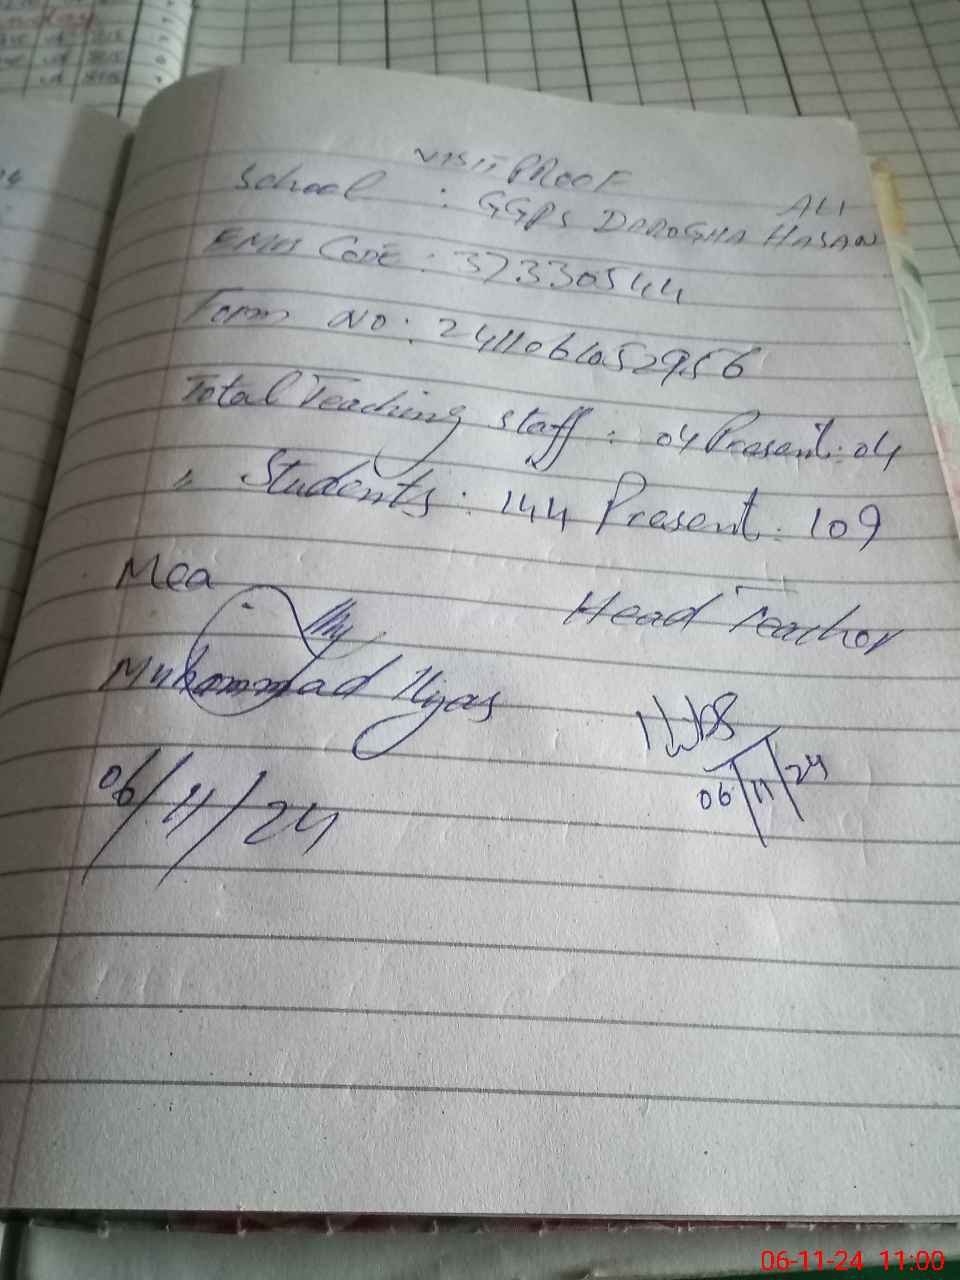 VISIT PROOF
School : GGPS DAROGHA HASAN ALI
EMIS CODE : 37330544
Form NO : 241106105295 6
Total Teaching staff : 04 Present : 04
" Students : 144 Present : 109
Mea
Head Teacher
Muhammad Ilyas
06/11/24
06/11/24
06-11-24 11:00